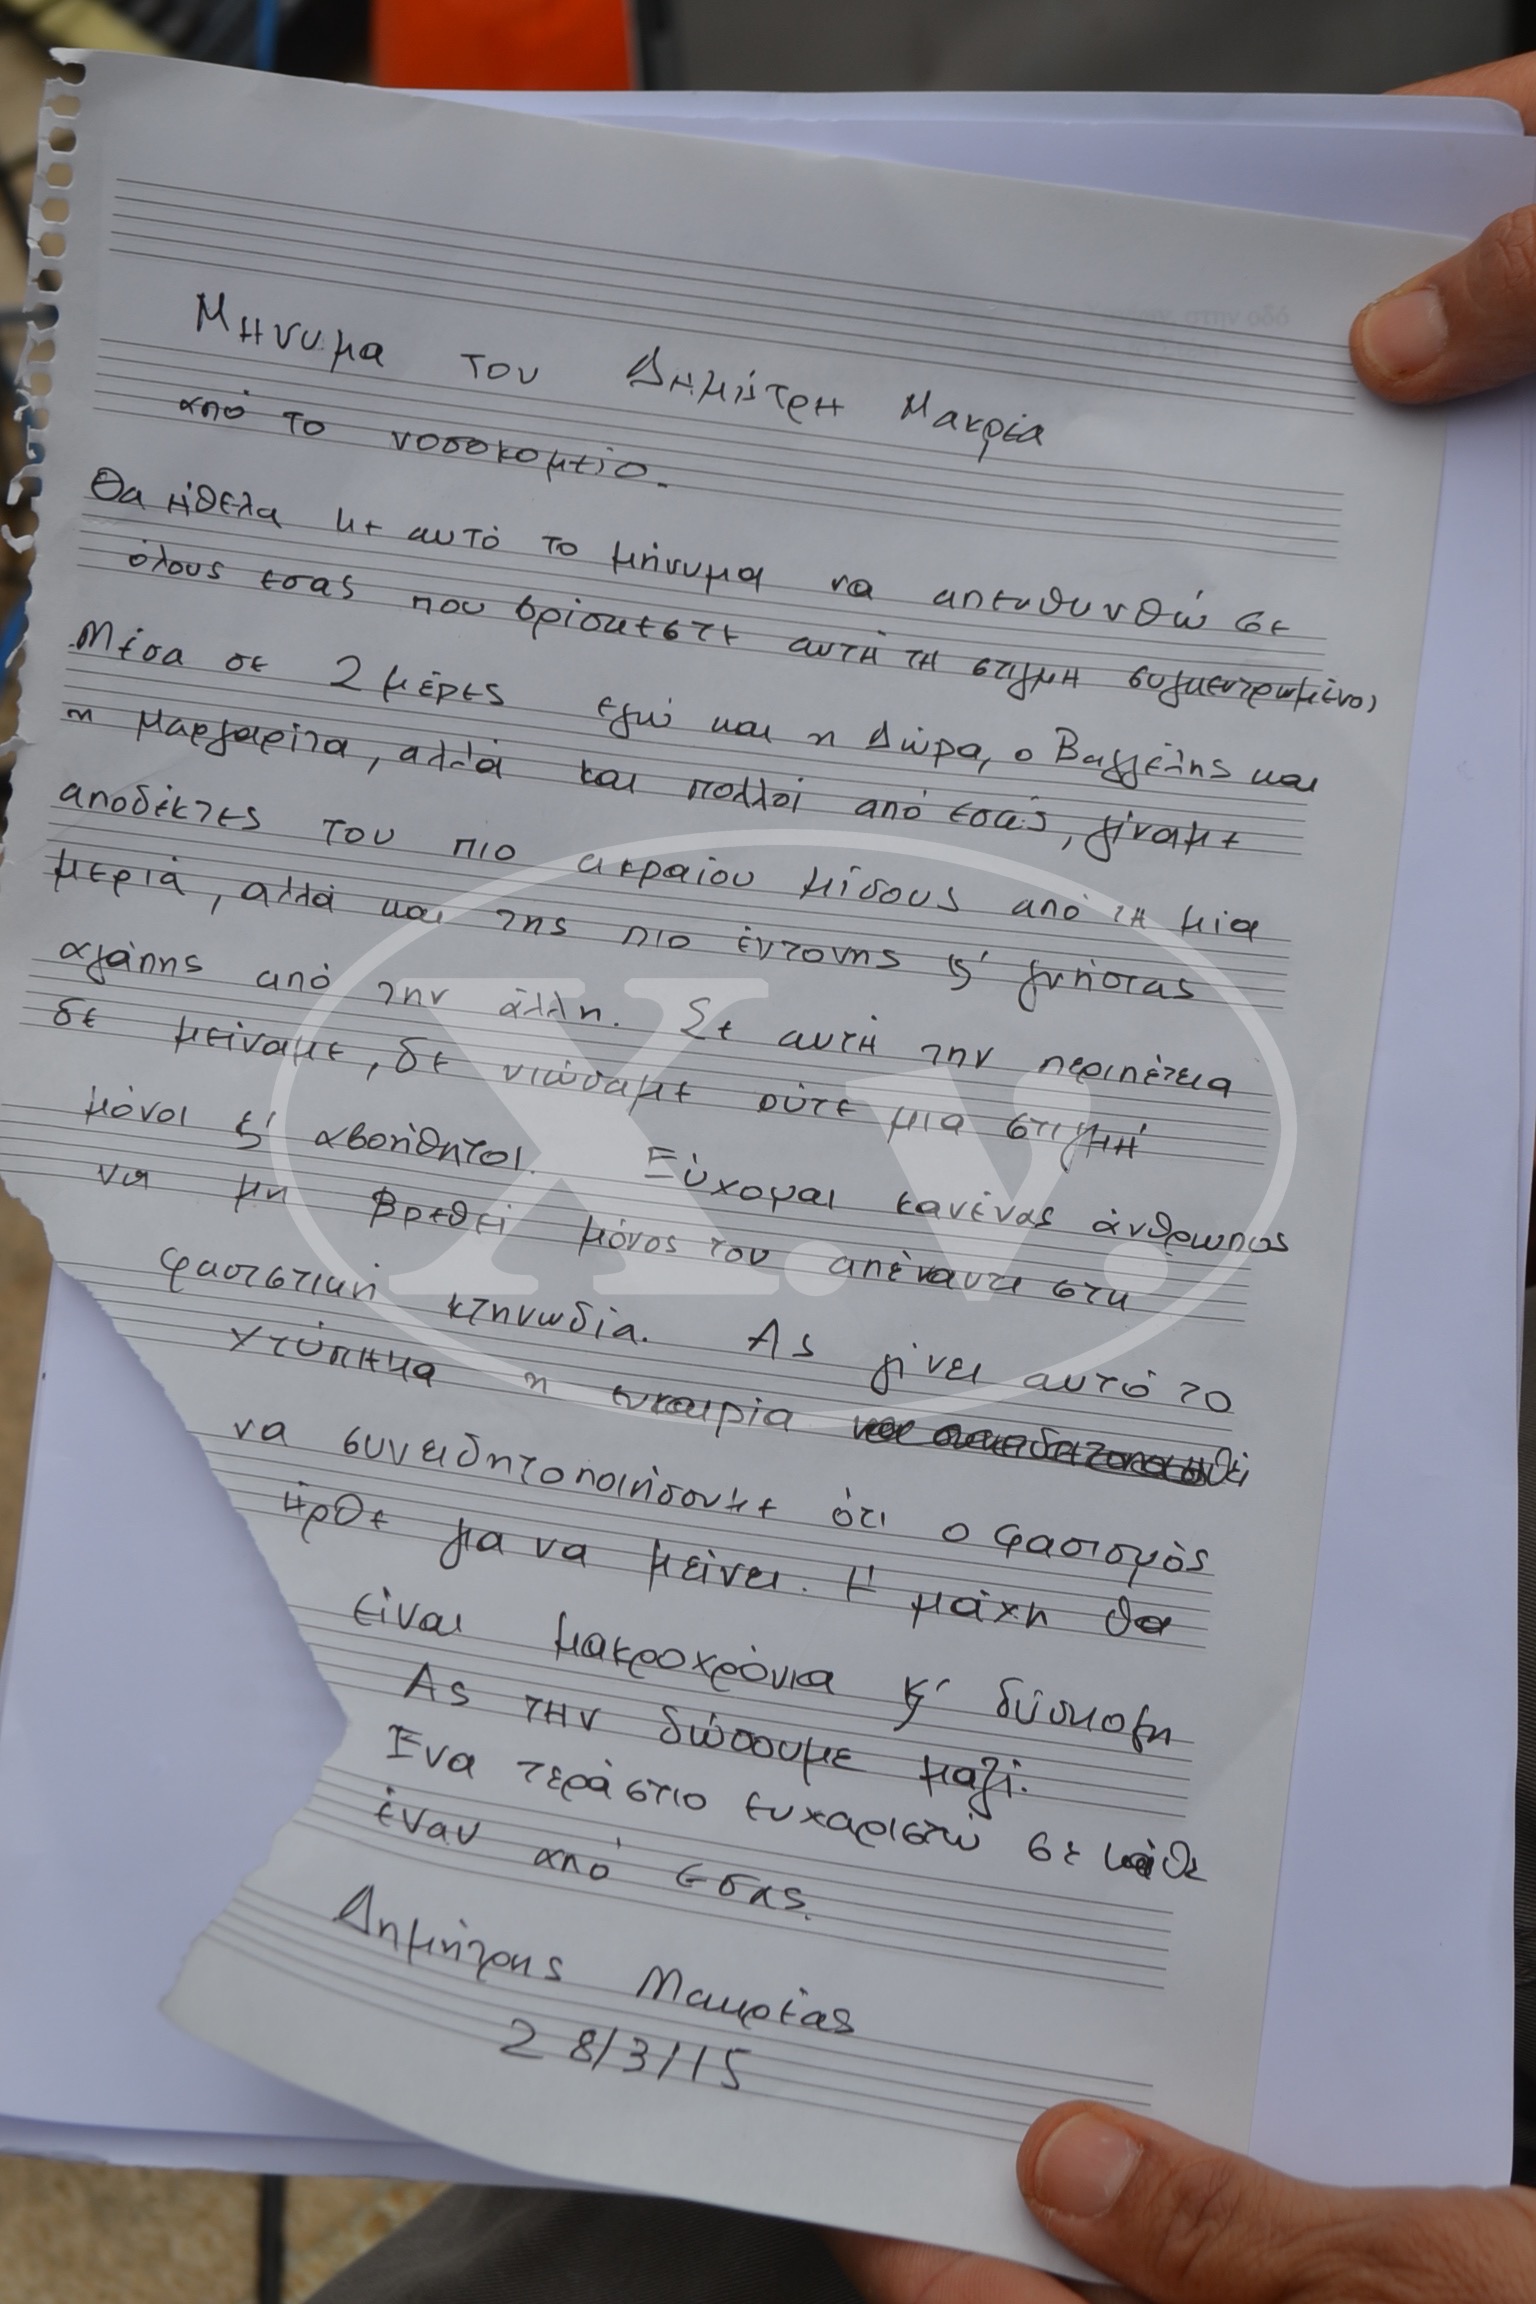 Μηνυμα του Δημήτρη Μακρέα
από το νοσοκομείο.
Θα ήθελα με αυτό το μήνυμα να απευθυνθώ σε
όλους εσας που βρίσκεστε αυτή τη στιγμη συγκεντρωμένοι
Μέσα σε 2 μέρες εγώ και η Δώρα, ο Βαγγέλης και
η Μαργαρίτα, αλλά και πολλοί από εσάς, γίναμε
αποδέκτες του πιο ακραίου μίσους από τη μια
μεριά, αλλά και της πιο έντονης κ' γνήσιας
αγάπης από την άλλη. Σε αυτή την περιπέτεια
δε μείναμε, δε νιώσαμε ούτε μια στιγμή
μόνοι κ' αβοήθητοι. Εύχομαι κανένας άνθρωπος
να μη βρεθεί μόνος του απέναντι στη
φασιστική κτηνωδία. Ας γίνει αυτό το
χτύπημα η ευκαιρία
να συνειδητοποιήσουμε ότι ο φασισμός
ήρθε για να μείνει. Η μάχη θα
είναι μακροχρόνια κ' δύσκολη
Ας την δώσουμε μαζί.
Ένα τεράστιο ευχαριστώ σε κάθε
έναν από εσας.
Δημήτρης Μακρέας
28/3/15
X.v.